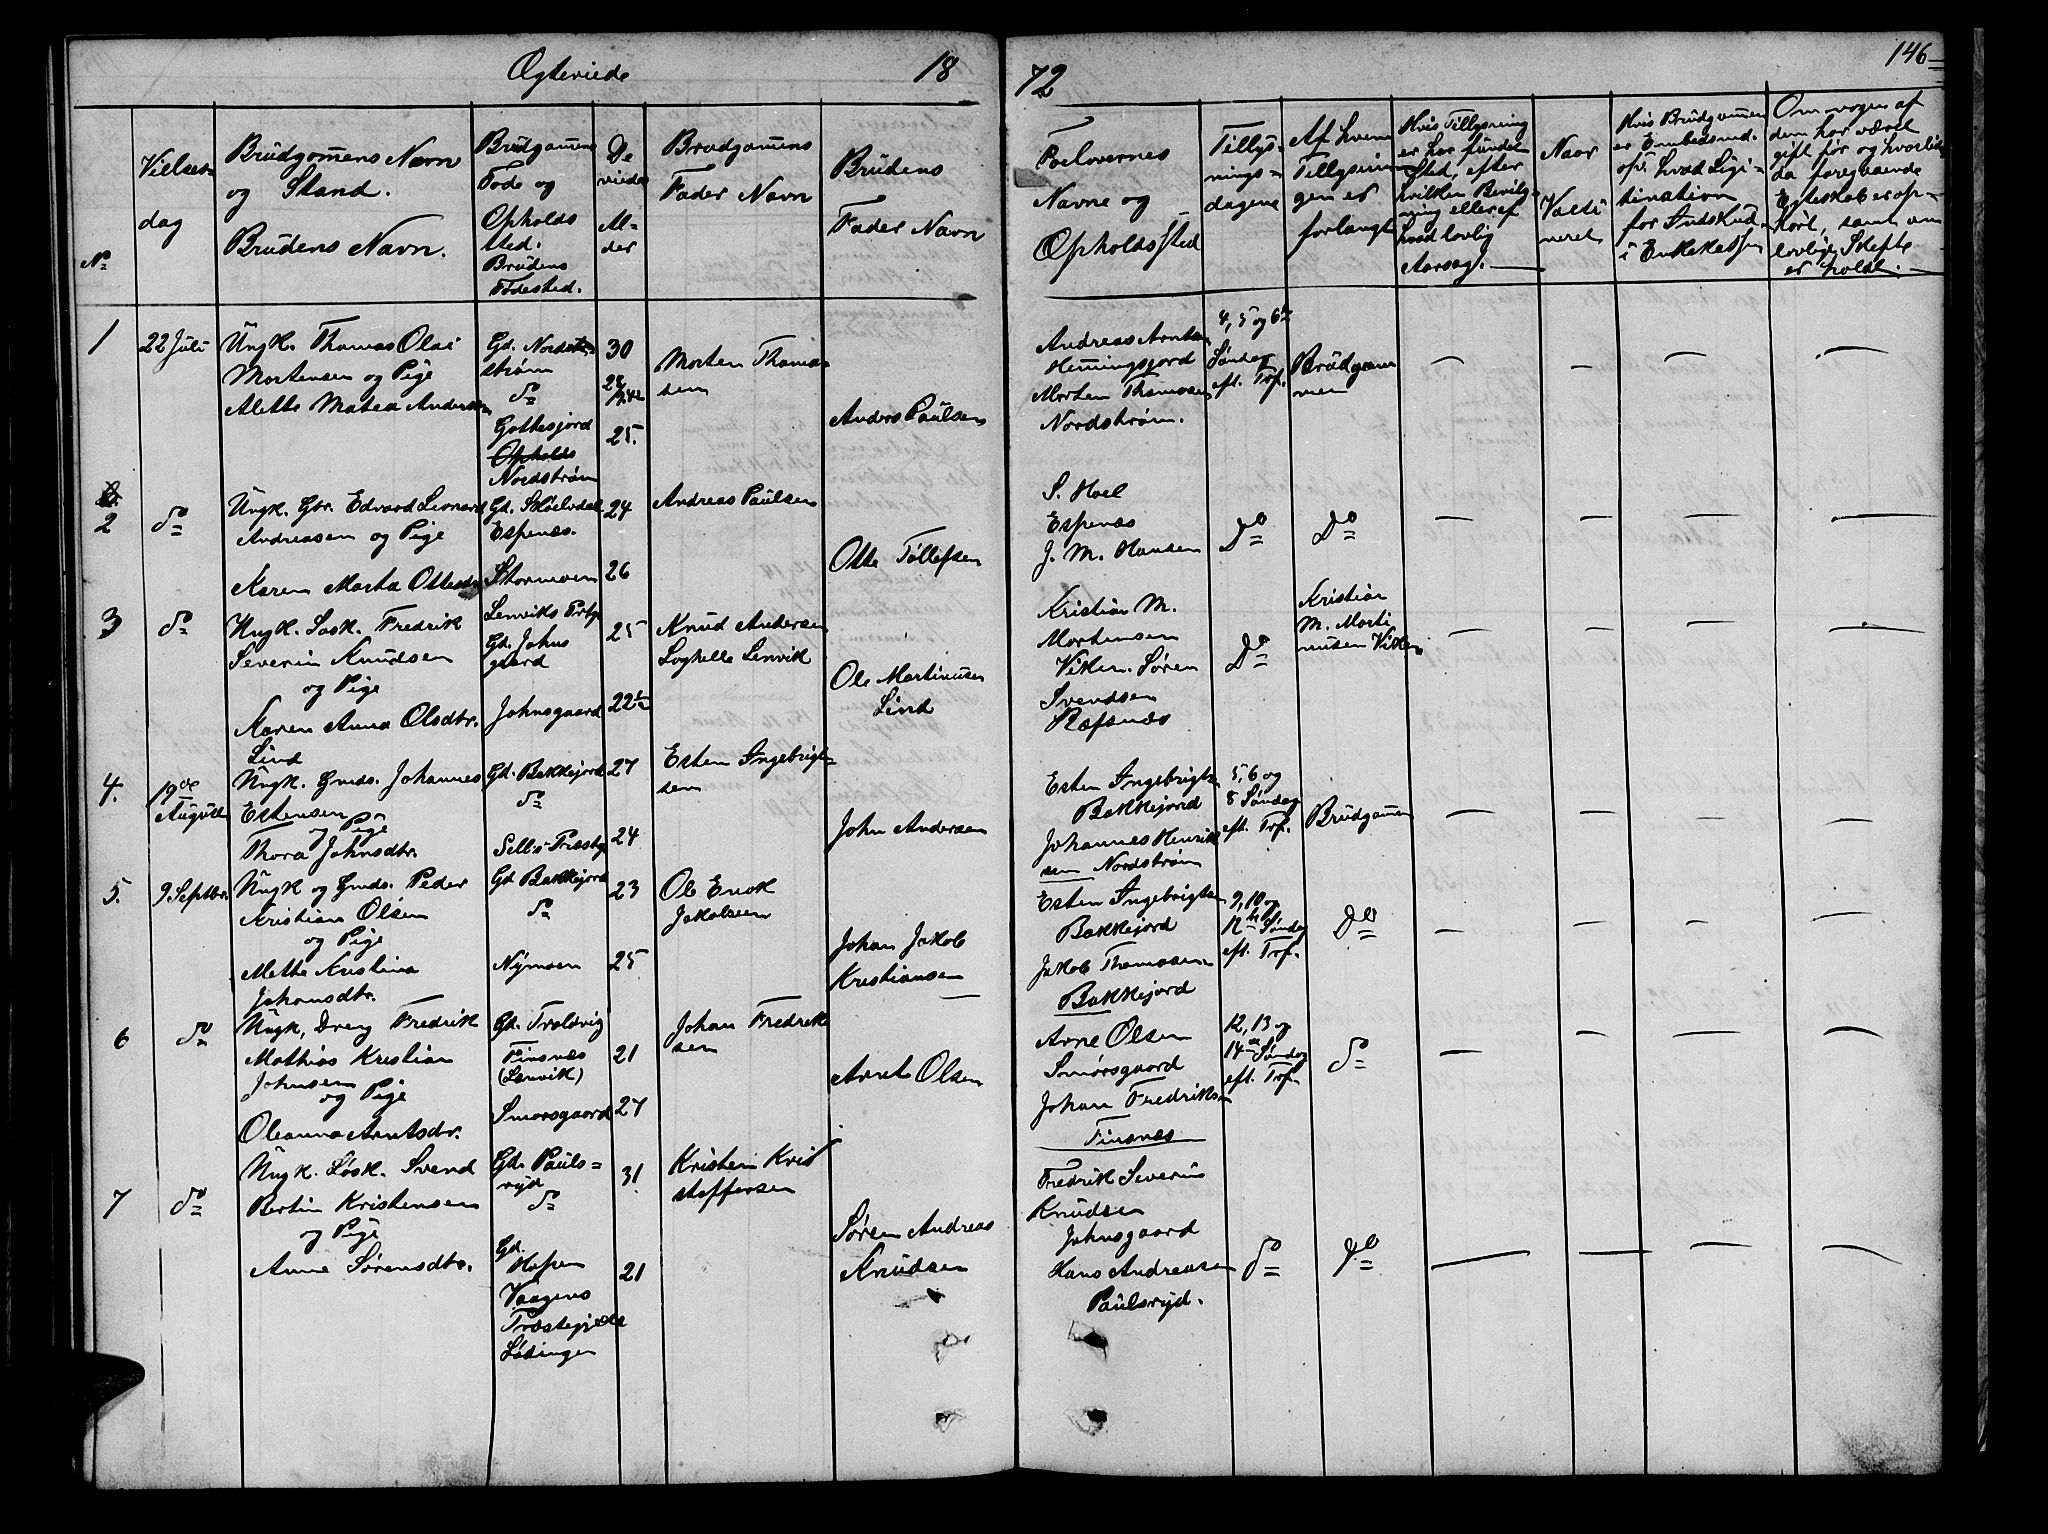 Ægteviede 18
72
146
No
Vielses-
dag
Brudgommens Navn
og Stand.
Brudens Navn.
Brudgommens
Føde og
Opholds
sted.
Brudens
Fødested.
De
viedes
Al-
der
Brudgommens
Fader Navn
Brudens
Fader Navn
Forlovernes
Navne og
Opholdssted
Tillys-
nings-
dagene
Af hvem
Tillysnin
gen er
forlangt
Hvis Tillysning
er har fundet
Sted, efter
hvilken Bevilg-
ning eller af
hvad lovlig
Aarsag.
Naar
Vacci
neret
Hvis Brudgommen
er Embedsmd.
ofv. hvad Ligi-
timation
for Indskud
i Enkekassen
Om nogen af
dem har været
gift før og hvorlede
da foregaaende
Egteskab er op-
hørt, samt om
lovlig Skifte
er holdt.
1
22 Juli
Ungk. Thomas Olai
Mortensen og Pige
Alette Matea Andersen
Gd. Nord
strøm
do
Gottesjord
Opholds
Nordstrøm
30
25.
Morten Thomas
sen
Anders Paulsen
Andreas Arntsen
Hemingsjord
Morten Thomasen
Nordstrøm.
4, 5 og 6te
Søndag
eft. Trf.
Brudgom
men
2
do
Ungk. Gbr. Edvard Leonard
Andreasen og Pige
Karen Marta Ottesdtr
Gd. Skøelvdal
Espenæs.
Stormoen
24
26
Andreas Paulsen
Otte Tollefsen
S. Hoel
Espenæs
J. M. Hansen
Do
Do
3
do
Ungk. Løsk. Fredrik
Severin Knudsen
og Pige
Karen Anna Olsdtr.
Lind
Lenviks Prstg
Gd. Johns
gaard
Johnsgaard
25
22
Knud Andersen
Løghelle Lenvik
Ole Martinusen
Lind
Kristian M.
Mortensen
Viken. Søren
Svendsen
Ræfsnæs
Do
Kristian
M. Morti
nusen Viken
4.
19de
August
Ungk. Gmds. Johannes
Estensen
og Pige
Thora Johnsdtr.
Gd. Bakkejord
do
Selbo Præstg
27
24
Esten Ingebrigt-
sen
John Andersen
Esten Ingebrigtsn
Bakkejord
Johannes Henrik
sen Nordstrøm
5, 6 og
8 Søndag
eft. Trf.
Brudgommen
5.
9 Septbr.
Ungk og Gmds. Peder
Kristian Olsen
og Pige
Mette Kristina
Johansdtr.
Gd Bakkejord
do
Nymoen
23
25
Ole Enok
Jakobsen
Johan Jakob
Kristiansen
Esten Ingebrigtsn
Bakkejord
Jakob Thomasen
Bakkejord
9, 10 og
12te Søndag
eft. Trf.
Do
6
do
Ungk, Dreng Fredrik
Mathias Kristian
Johnsen
og Pige
Oleanna Arntsdtr.
Gd. Troldvig
Finsnæs
(Lenvik)
Smørsgaard
21
27
Johan Fredrik
sen
Arnt Olsen
Arne Olsen
Smørsgaard
Johan Fredriksn
Finsnæs
12, 13 og
14de Søndag
eft. Trf.
do
7
do
Ungk. Løsk. Svend
Bertin Kristensen
og Pige
Anne Sørensdtr.
Gd. Pauls-
ryd
do
Gd.
Hopen
Vaagens
Præstegjeld
Lødingen
31
21
Kristen Kris
stoffersen
Søren Andreas
Knudsen
Fredrik Severin
Knudsen
Johnsgaard
Hans Andreasen
Paulsryd.
do
Do